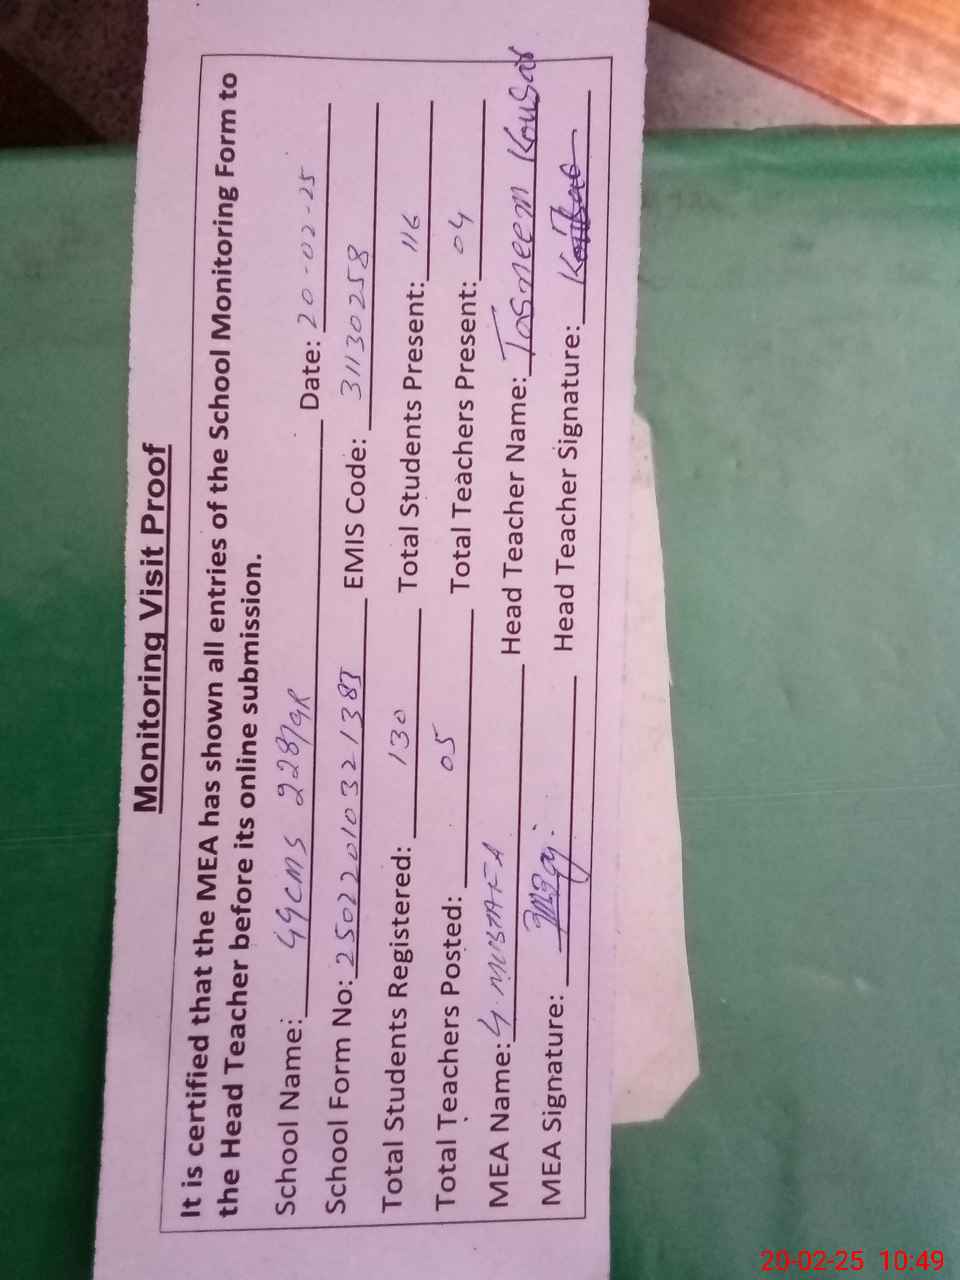 Monitoring Visit Proof
It is certified that the MEA has shown all entries of the School Monitoring Form to
the Head Teacher before its online submission.
School Name: GGCMS 228/GR Date: 20-02-25
School Form No: 25022010321383 EMIS Code: 31130258
Total Students Registered: 130 Total Students Present: 116
Total Teachers Posted: 05 Total Teachers Present: 04
MEA Name: G. MUSTAFA Head Teacher Name: Tasneem Kousar
MEA Signature: Head Teacher Signature:
20-02-25 10:49